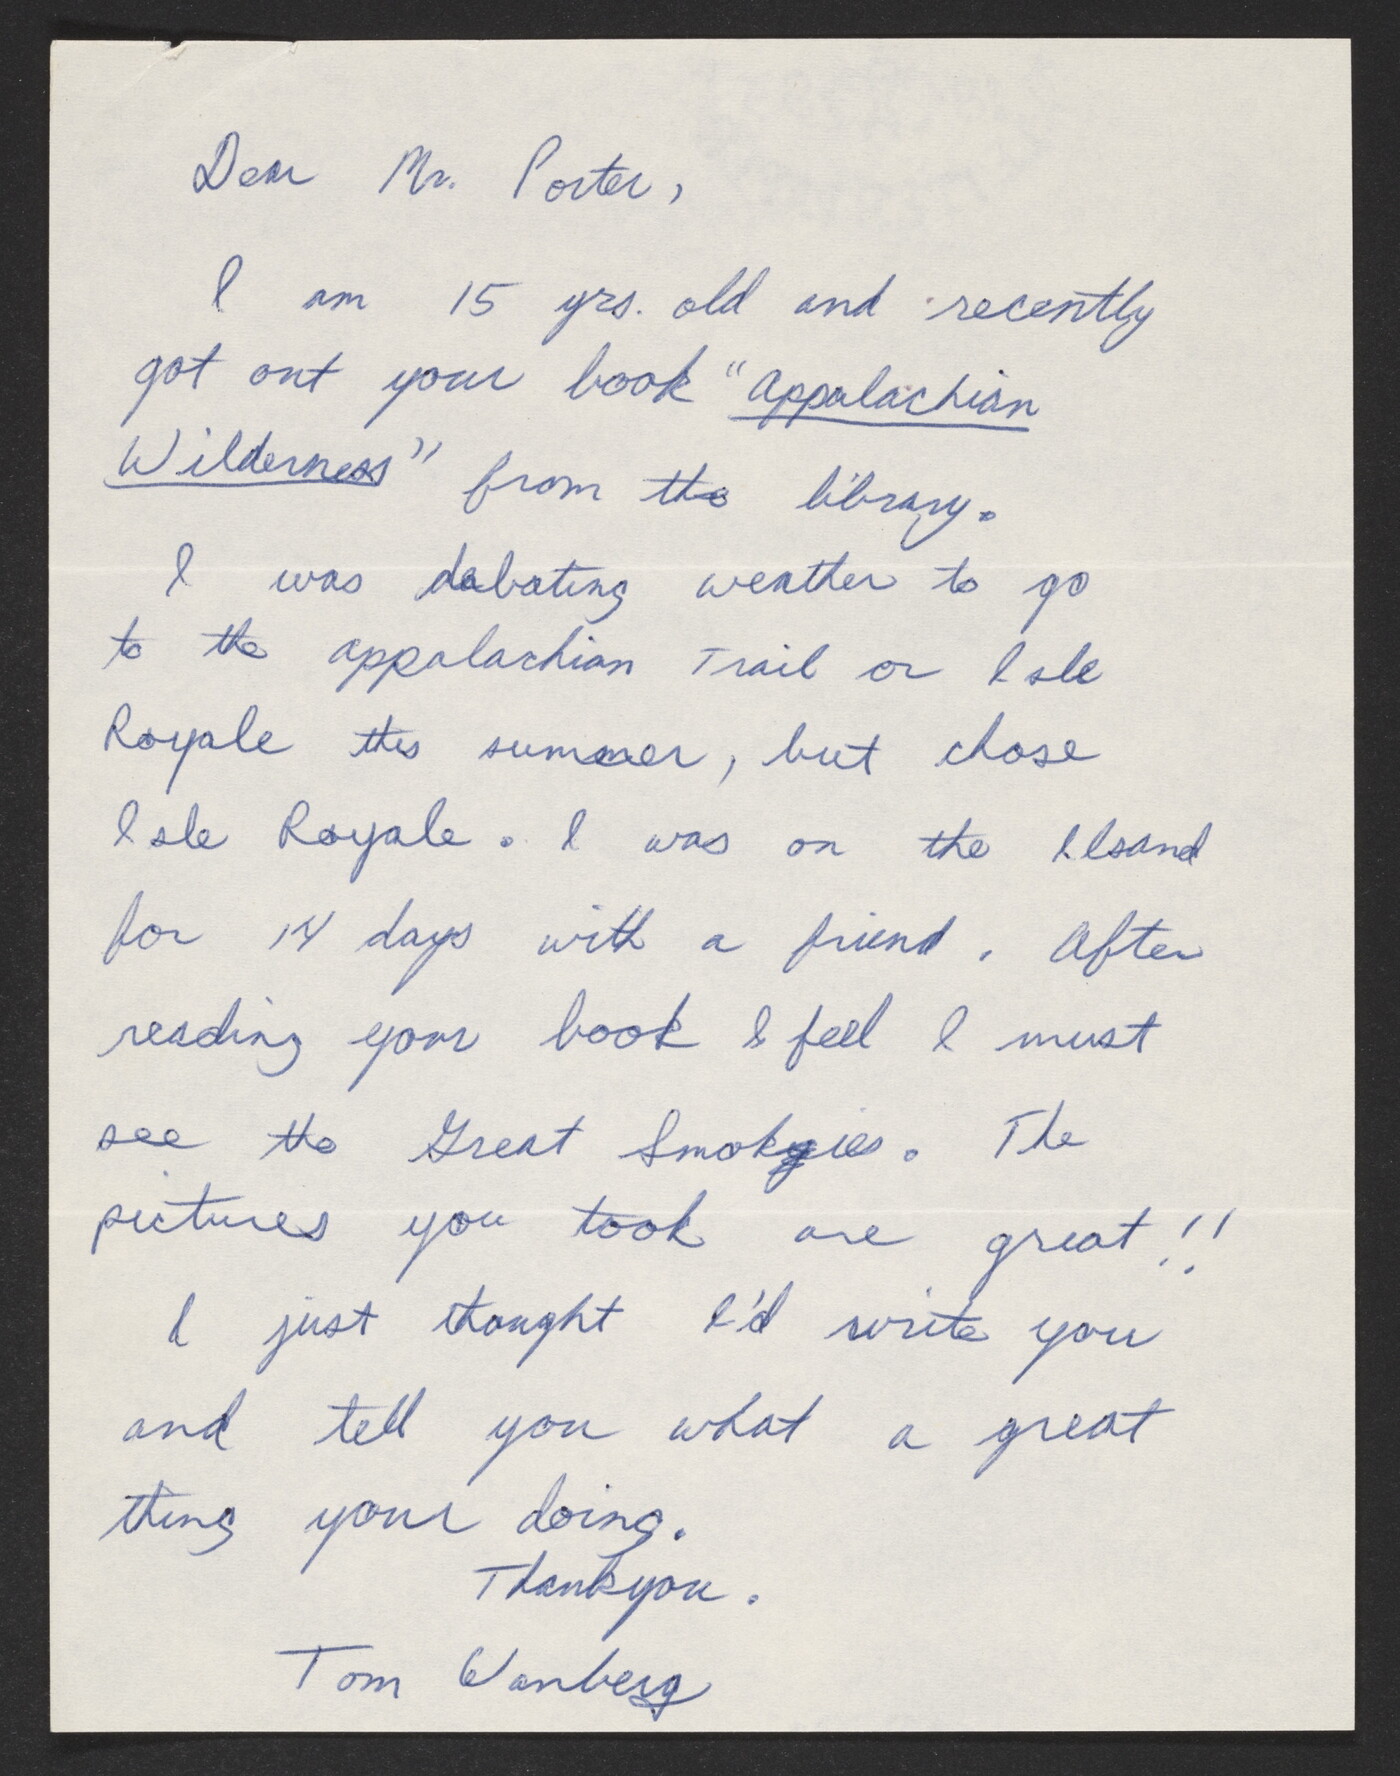 Dear Mr. Porter,
I am 15 yrs. old and recently
got out your book "Appalachian
Wilderness" from the library.
I was debating weather to go
to the appalachian Trail or Isle
Royale this summer, but chose
Isle Royale. I was on the Ilsand
for 14 days with a friend. After
reading your book I feel I must
see the Great Smokies. The
pictures you took are great!!
I just thought I'd write you
and tell you what a great
thing your doing.
Thankyou.
Tom Wanberg